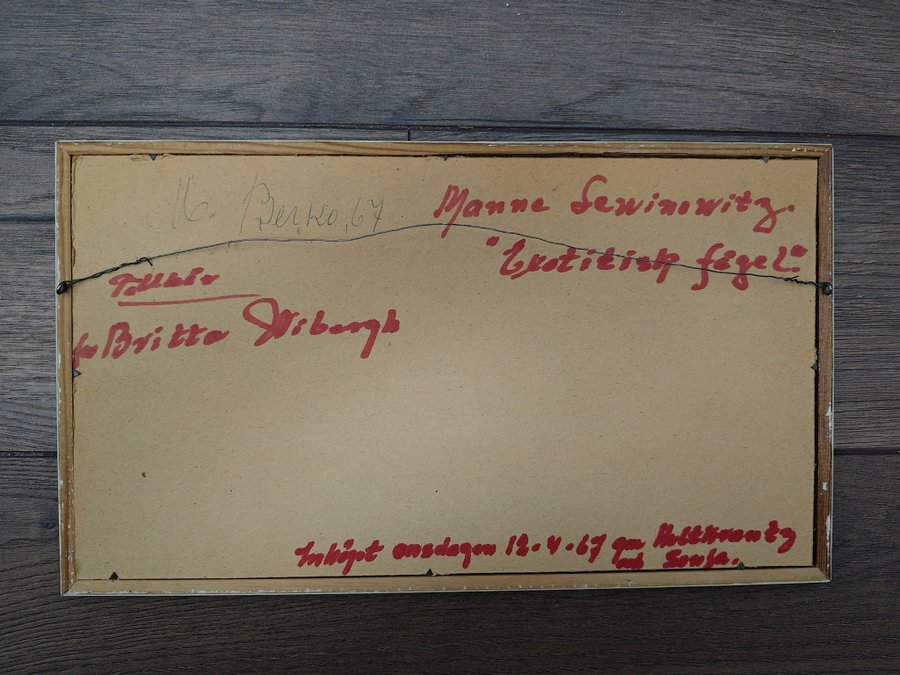 M. Berko, 67
Manne Lewinowitz.
"Exotitisk fågel."
Tillhör
fru Britta Wibergh
Inköpt onsdagen 12.4.67 gm Holtkrantz
och Sonja.